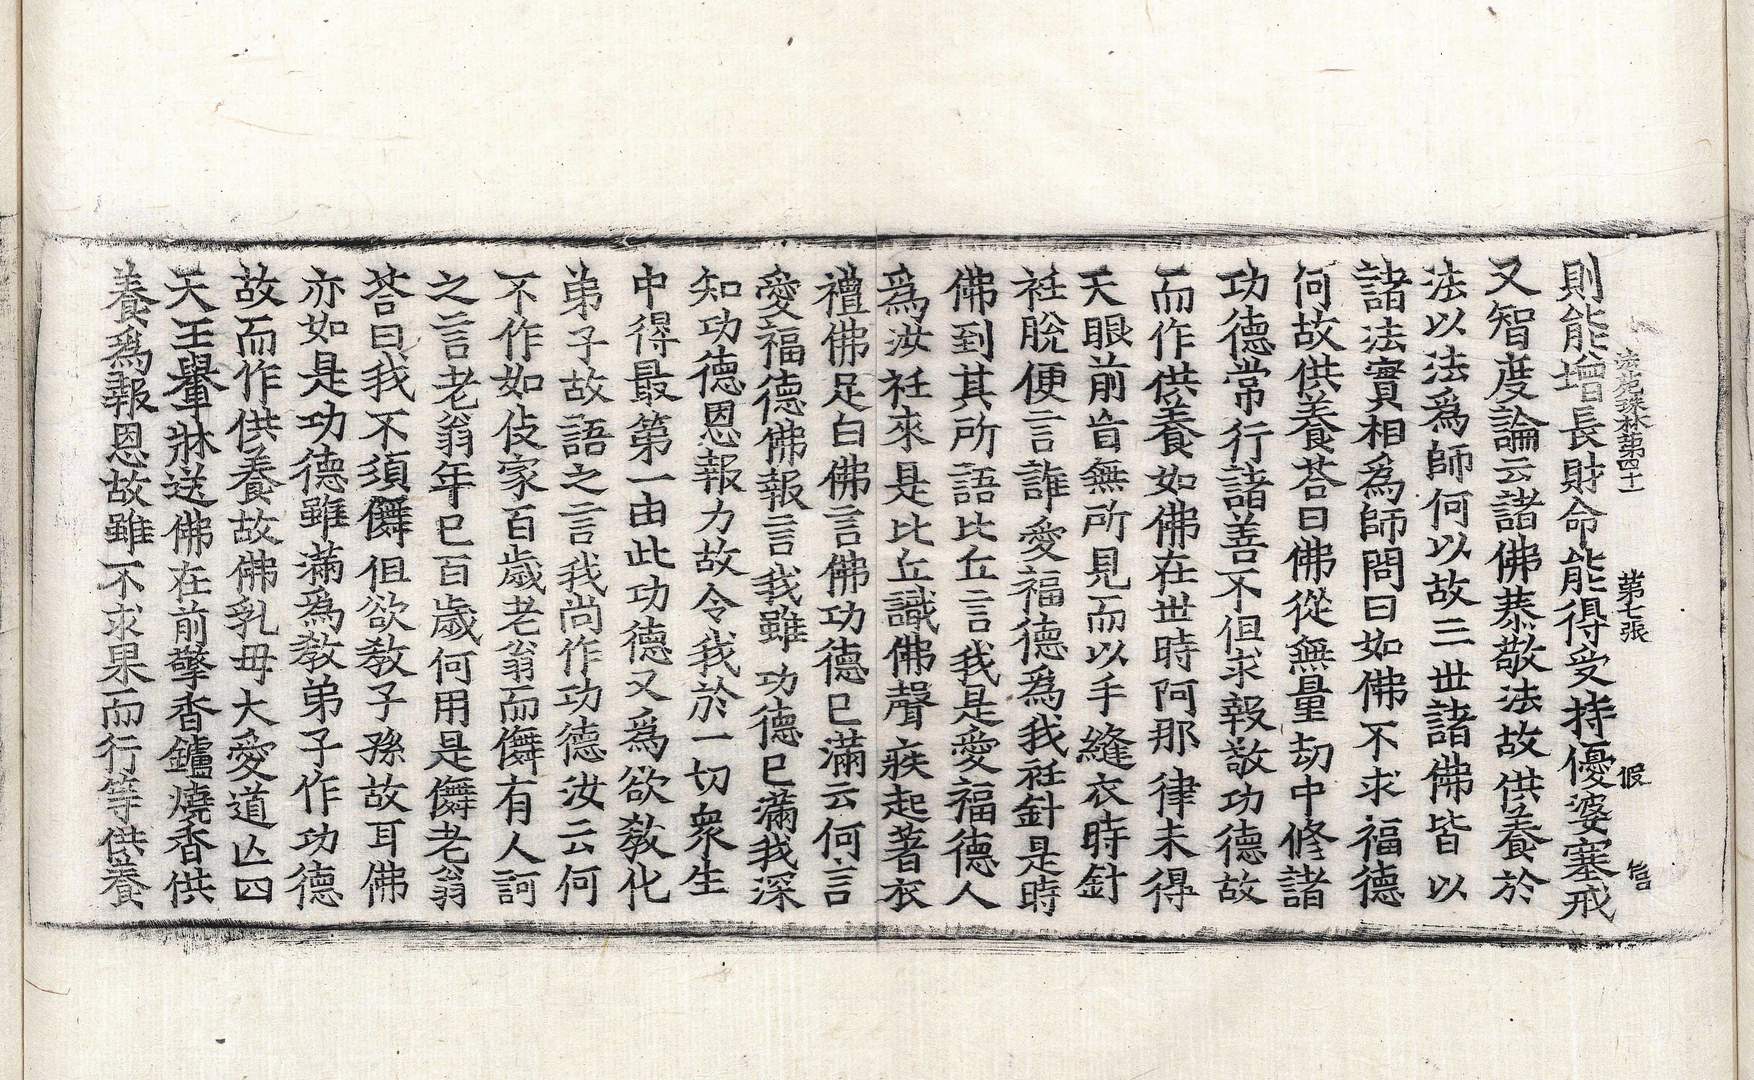 法苑珠林第四十一 第七張 假
則能增長財命能得受持優婆塞戒
又智度論云諸佛恭敬法故供養於
法以法爲師何以故三世諸佛皆以
諸法實相爲師問曰如佛不求福德
何故供養荅曰佛從無量劫中修諸
功德常行諸善不但求報敬功德故
而作供養如佛在世時阿那律未得
天眼前盲無所見而以手縫衣時針
袵脫便言誰愛福德爲我袵針是時
佛到其所語比丘言我是愛福德人
爲汝袵來是比丘識佛聲疾起著衣
禮佛足白佛言佛功德已滿云何言
愛福德佛報言我雖功德已滿我深
知功德恩報力故令我於一切衆生
中得最第一由此功德又爲欲敎化
弟子故語之言我尚作功德汝云何
不作如伎家百歲老翁而儛有人訶
之言老翁年已百歲何用是儛老翁
荅曰我不須儛但欲敎子孫故耳佛
亦如是功德雖滿爲敎弟子作功德
故而作供養故佛乳母大愛道亡四
天王轝牀送佛在前擎香鑪燒香供
養爲報恩故雖不求果而行等供養